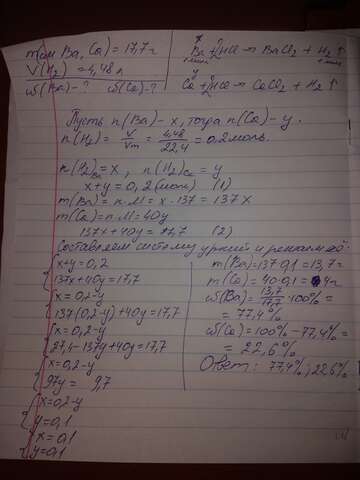 m(см Ba, Ca) = 17,7 г
V(H₂) = 4,48 л
ω(Ba) - ? ω(Ca) - ?
x
Ba + 2HCl → BaCl₂ + H₂↑
1 моль 1 моль
y
Ca + 2HCl → CaCl₂ + H₂↑
Пусть n(Ba) - x, тогда n(Ca) - y.
n(H₂) = V/Vm = 4,48/22,4 = 0,2 моль.
n(H₂)Ba = x, n(H₂)Ca = y
x + y = 0,2 (моль) (1)
m(Ba) = n·M = x·137 = 137x
m(Ca) = n·M = 40y
137x + 40y = 17,7 (2)
Составляем систему ур-ний и решаем её:
{x + y = 0,2
137x + 40y = 17,7
{x = 0,2 - y
137(0,2 - y) + 40y = 17,7
{x = 0,2 - y
27,4 - 137y + 40y = 17,7
{x = 0,2 - y
97y = 9,7
{x = 0,2 - y
y = 0,1
{x = 0,1
y = 0,1
m(Ba) = 137·0,1 = 13,7 г
m(Ca) = 40·0,1 = 4 г
ω(Ba) = 13,7/17,7 · 100% =
= 77,4%
ω(Ca) = 100% - 77,4% =
= 22,6%
Ответ: 77,4%; 22,6%